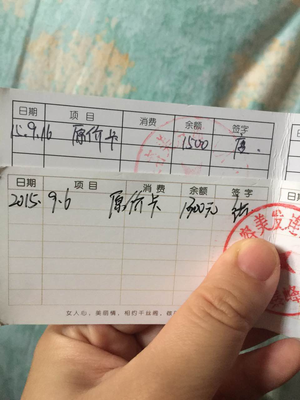 日期 项目 消费 余额 签字
15.9.16 原价卡 1500
日期 项目 消费 余额 签字
2015.9.6 原价卡 1300元
美发连
女人心，美丽情，相约千丝缘，